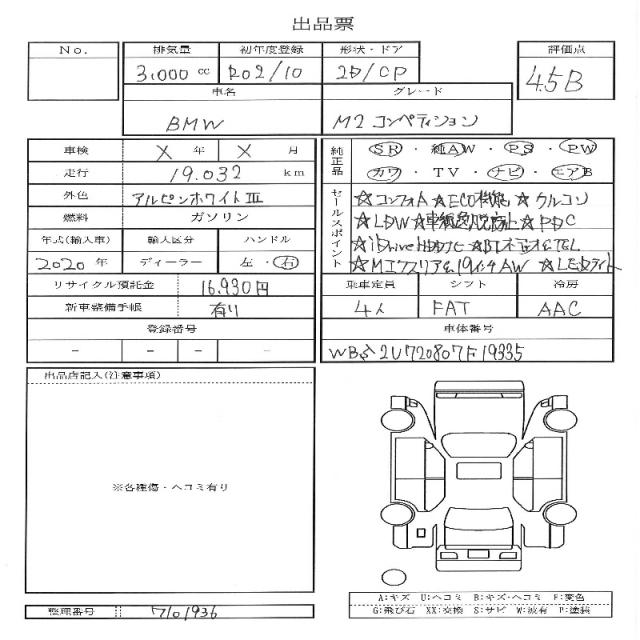 出品票
No. 排気量 初年度登録 形状・ドア 評価点
3,000 cc R02/10 2D/CP 4.5B
車名 グレード
BMW M2 コンペティション
車検 X 年 X 月
走行 19.032 km
外色 アルピンホワイトⅢ
燃料 ガソリン
年式(輸入車) 輸入区分 ハンドル
2020 年 ディーラー 左・右
リサイクル預託金 16,930円
新車整備手帳 有り
登録番号
- - - -
純正品 SR・純AW・PS・PW
カワ・TV・ナビ・エアB
セールスポイント
☆コンフォA ☆ECO機能 ☆クルコン
☆LDW ☆ ☆PDC
☆iDriveHDDナビ
☆Mエクステリア&19インチAW ☆LEDライト
乗車定員 シフト 冷房
4人 FAT AAC
車体番号
2U720807F19335
出品店記入(注意事項)
※各種傷・ヘコミ有り
整理番号 7101936
A:キズ U:ヘコミ B:キズ・ヘコミ F:変色
G:飛び石 XX:交換 S:サビ W:波有 P:塗装